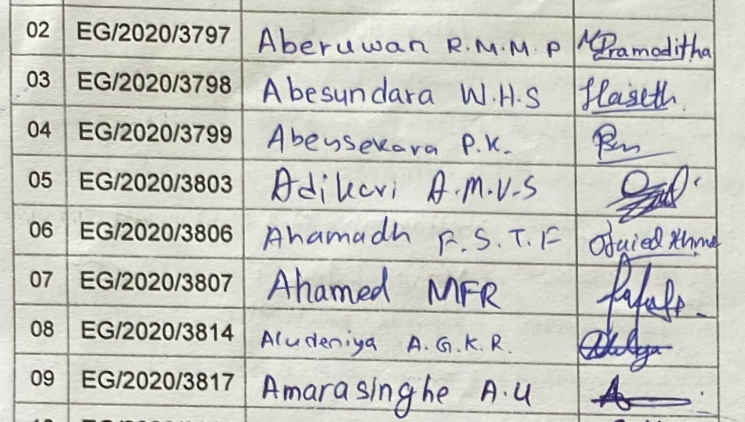 02 EG/2020/3797 Aberuwan R.M.M.P MPramoditha
03 EG/2020/3798 Abesundara W.H.S Haseth.
04 EG/2020/3799 Abeysekara P.K.
05 EG/2020/3803 Adikari A.M.V.S
06 EG/2020/3806 Ahamadh F.S.T.F
07 EG/2020/3807 Ahamed MFR
08 EG/2020/3814 Aludeniya A.G.K.R.
09 EG/2020/3817 Amarasinghe A.U